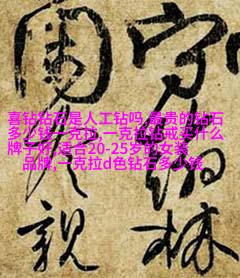 喜钻钻石是人工钻吗,最贵的钻石
多少钱一克拉,一克拉钻戒买什么
牌子好,适合20-25岁的女装
品牌,一克拉d色钻石多少钱
守林
親